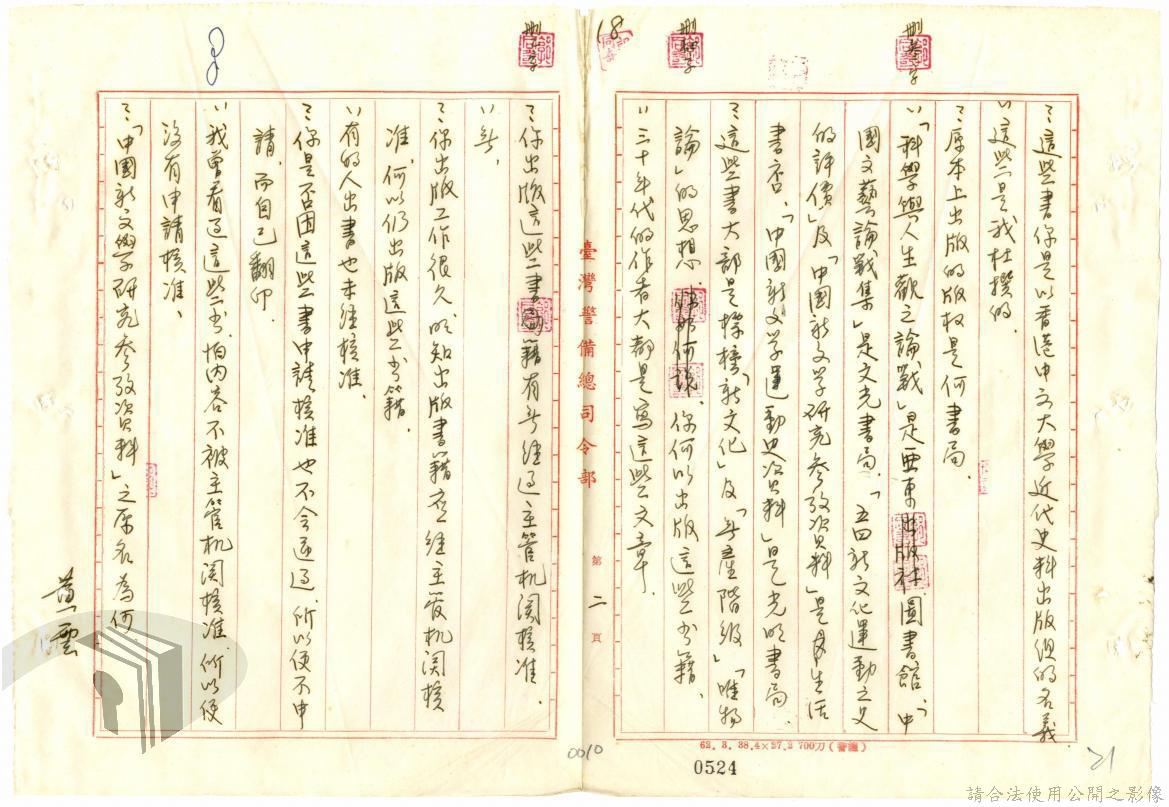 刪叁字
刪肆字
18
刪壹字
〻這些書你是以香港中文大學近代史料出版組的名義
〃這些是我杜撰的.
〻原本上出版的版权是何書局.
〃「科學與人生觀之論戰」是亜東出版社圖書館、「中
國文藝論戰集」是文光書局.「五四新文化運動之史
的評價」及「中国新文学研究参攷資料」是生活
書店、「中國新文学運動史資料」是光明書局.
〻這些書大部是標榜「新文化」及「無產階級」「唯物
論」的思想.你何以出版這些书籍.
〃三十年代的作者大都是寫這些文章.
臺灣警備總司令部
第二頁
〻你出版這些書籍有無經過主管机関核准.
〃無.
〻你出版工作很久,明知出版書籍应經主管机関核
准,何以仍出版這些书籍.
〃有的人出書也未經核准.
〻你是否因這些書申請核准也不会通過,所以便不申
請.而自己翻印.
〃我曾看過這些书.怕内容不被主管机関核准.所以便
没有申請核准.
〻「中国新文學研究参攷資料」之原名為何
62. 3. 38.4×27.2 700刀(晋繼)
0524
0010
21
請合法使用公開之影像